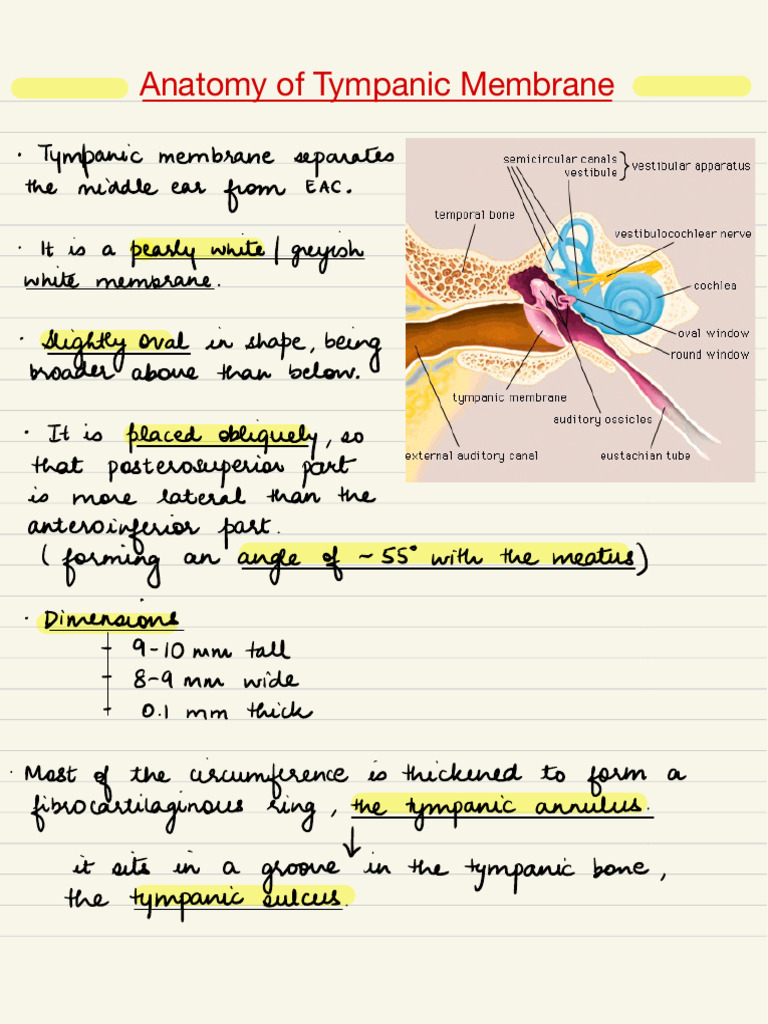 Anatomy of Tympanic Membrane
· Tympanic membrane separates
the middle ear from EAC.
· It is a pearly white / greyish
white membrane.
· Slightly oval in shape, being
broader above than below.
· It is placed obliquely, so
that posterosuperior part
is more lateral than the
anteroinferior part.
( forming an angle of ~ 55° with the meatus)
semicircular canals
vestibule
vestibular apparatus
temporal bone
vestibulocochlear nerve
cochlea
oval window
round window
tympanic membrane
auditory ossicles
external auditory canal
eustachian tube
· Dimensions
9-10 mm tall
8-9 mm wide
0.1 mm thick
· Most of the circumference is thickened to form a
fibrocartilaginous ring, the tympanic annulus.
↓
it sits in a groove in the tympanic bone,
the tympanic sulcus.